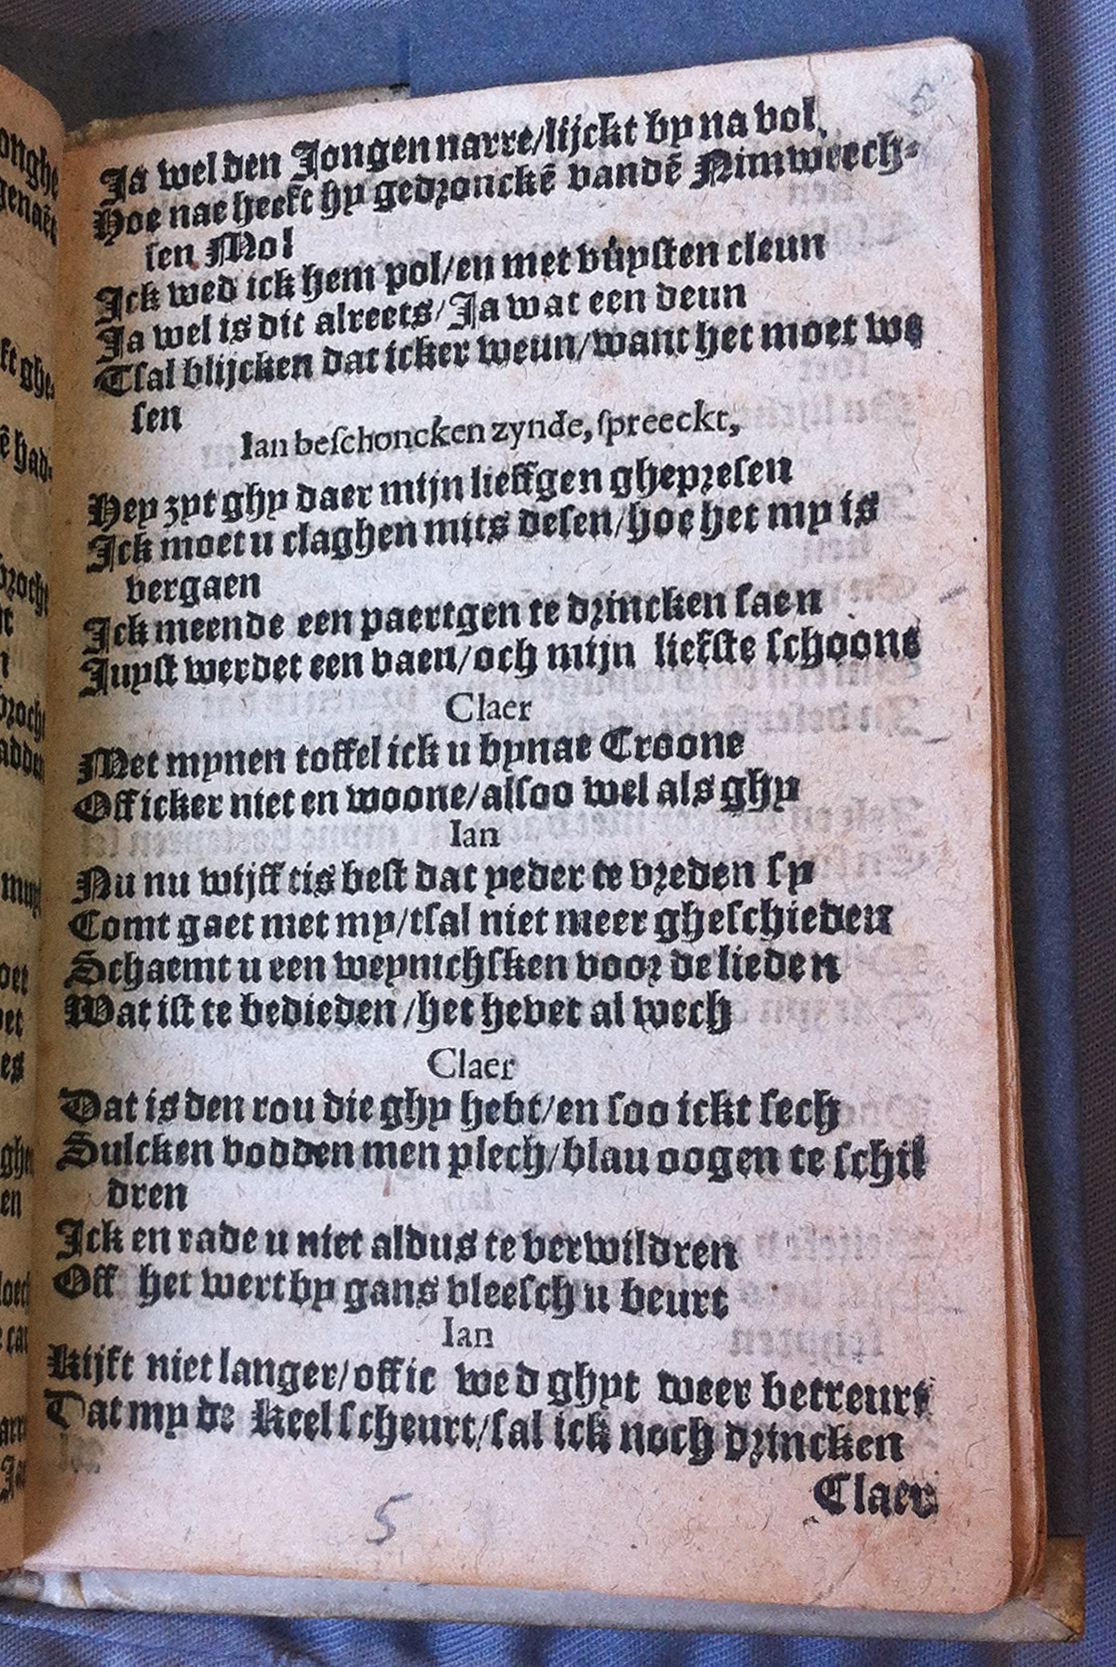 5
Ja wel den Jongen narre/lijckt by na vol,
Hoe nae heeft hy gedronckē vandē Nimweech-
sen Mol
Ick wed ick hem pol/en met vuysten cleun
Ja wel is dit alreets/Ja wat een deun
Tsal blijcken dat icker weun/want het moet we
sen
Ian beschoncken zynde, spreeckt,
Hey zyt ghy daer mijn lieffgen ghepresen
Ick moet u claghen mits desen/hoe het my is
vergaen
Ick meende een paertgen te drincken saen
Juyst werdet een vaen/och mijn liefste schoone
Claer
Met mynen toffel ick u bynae Croone
Off icker niet en woone/alsoo wel als ghy
Ian
Nu nu wijff tis best dat yeder te vreden sy
Comt gaet met my/tsal niet meer gheschieden
Schaemt u een weynichsken voor de lieden
Wat ist te bedieden/het hevet al wech
Claer
Dat is den rou die ghy hebt/en soo ickt sech
Sulcken vodden men plech/blau oogen te schil
dren
Ick en rade u niet aldus te verwildren
Off het wert by gans vleesch u beurt
Ian
Kijft niet langer/offic wed ghyt weer betreurt
Dat my de keel scheurt/sal ick noch drincken
Claer
5